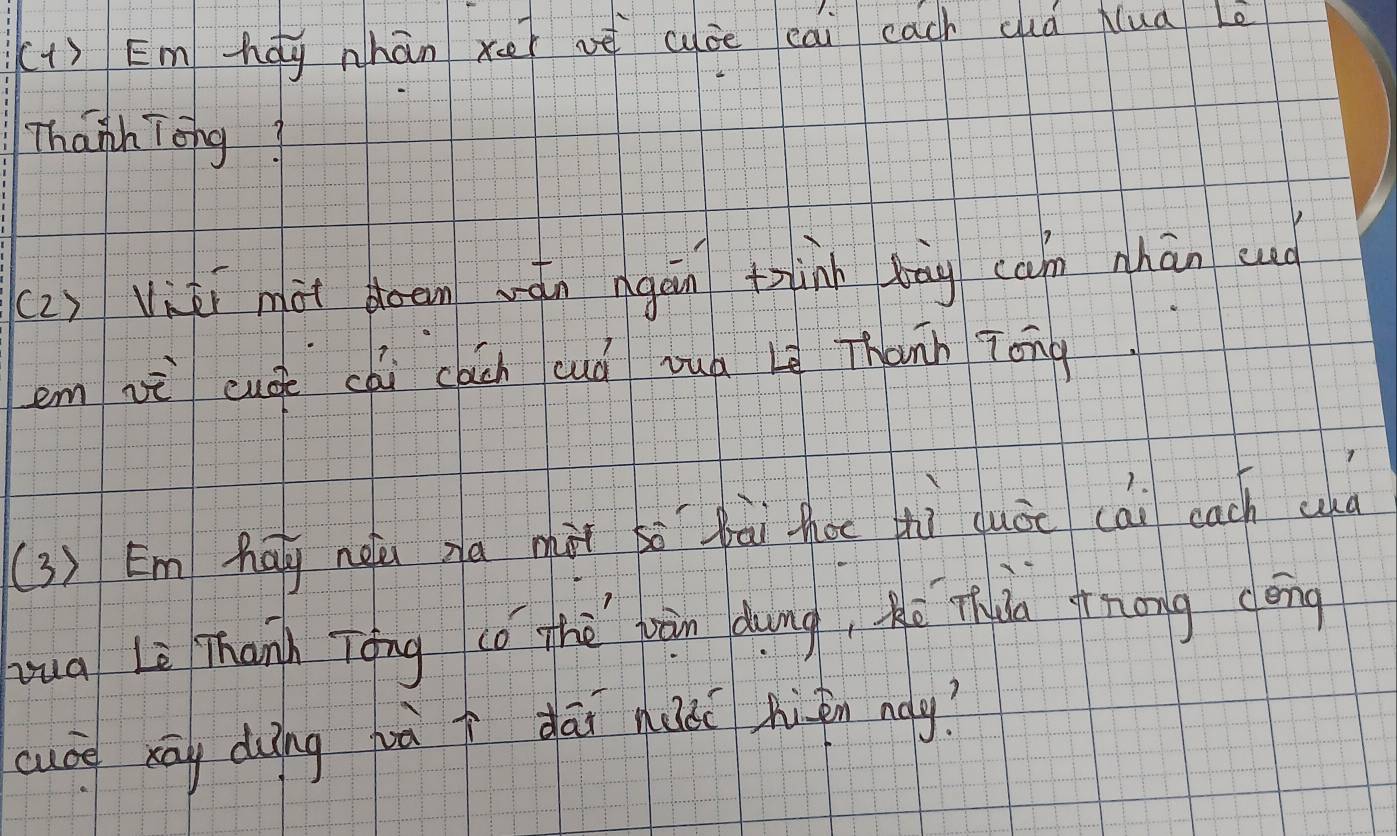 (1) Em hãy nhận xét về cuộc cải cách của Vua Lê
Thánh Tông ?
(2) Viết một đoạn văn ngắn trình bày cảm nhận của
em về cuộc cải cách của vua Lê Thánh Tông .
(3) Em hãy nêu ra một số bài học từ cuộc cải cách của
vua Lê Thánh Tông có thể vận dụng, kế thừa trong công
cuộc xây dựng và ↑ đất nước hiện nay?